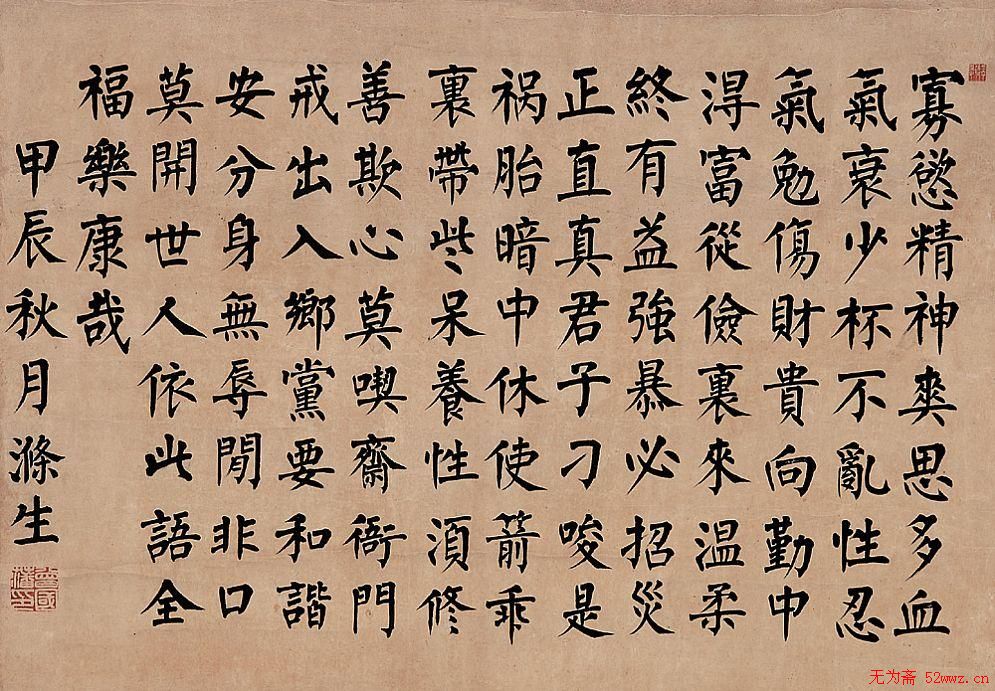 寡慾精神爽思多血
氣衰少杯不亂性忍
氣免傷財貴向勤中
淂富從儉裏來温柔
終有益強暴必招災
正直真君子刁唆是
祸胎暗中休使箭乖
裏帶些呆養性湏修
善欺心莫喫齋衙門
戒出入鄉黨要和諧
安分身無辱閒非口
莫開世人依此語全
福樂康哉
甲辰秋月滌生
无为斋 52wwz.cn